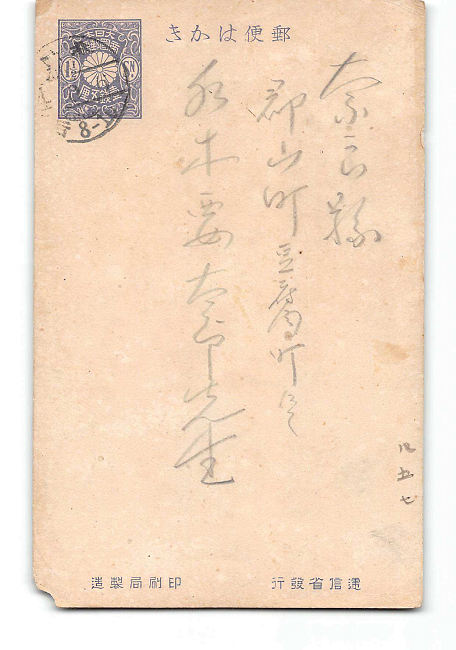 郵便はかき
大日本
帝國郵便
1½ Sn
壹錢五厘
8-1
奈良縣
郡山町豆腐町にて
水木要太郎先生
12 五 七
遞信省發行
印刷局製造